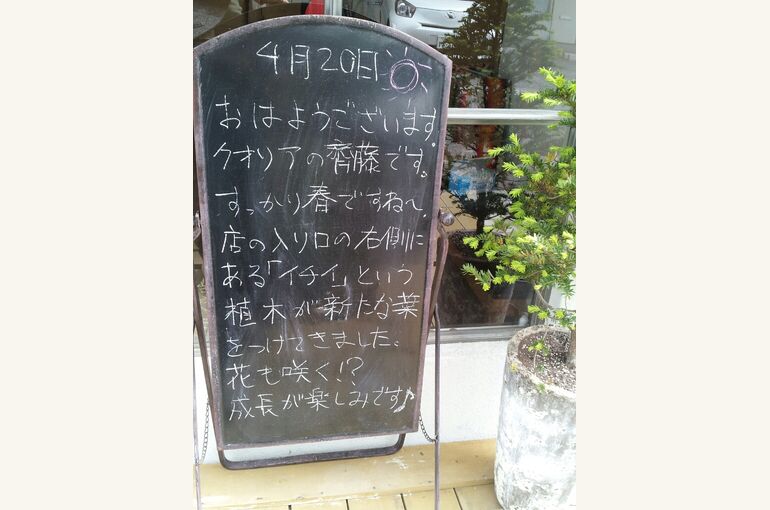 4月20日
おはようございます。
クオリアの齊藤です。
すっかり春ですね〜。
店の入り口の右側に
ある「イチイ」という
植木が新たな葉
をつけてきました。
花も咲く!?
成長が楽しみです♪